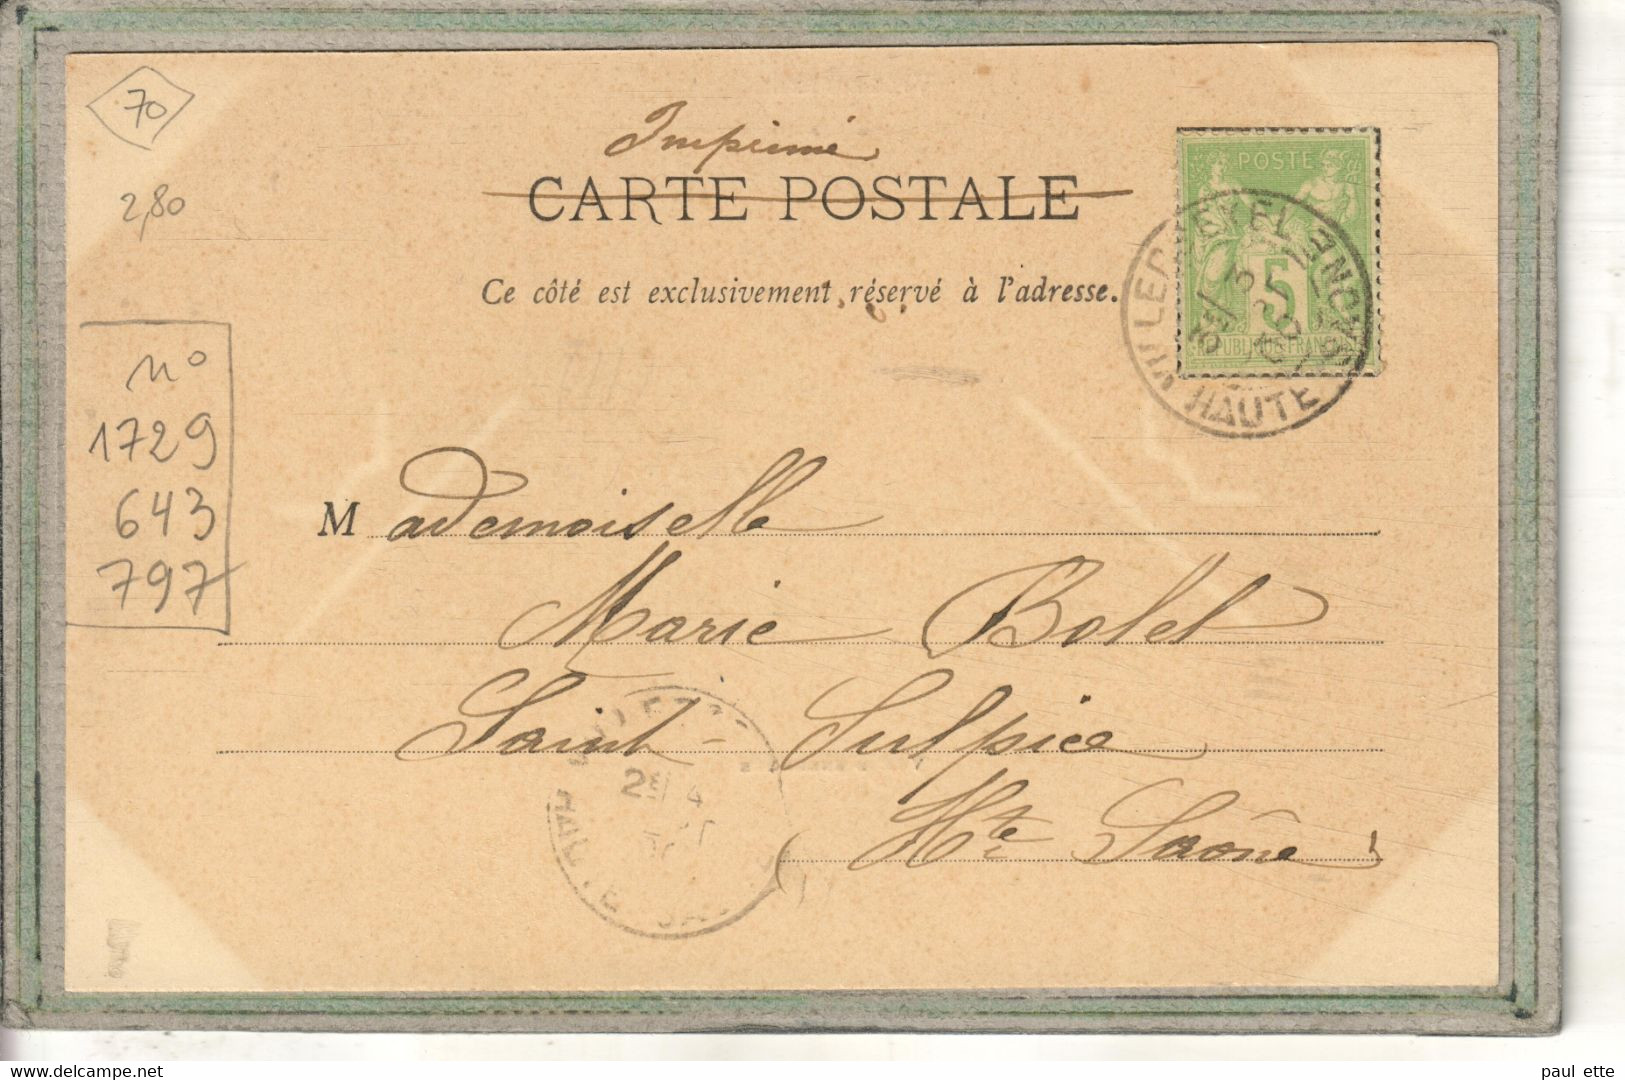 70
2,80
Imprimé
CARTE POSTALE
Ce côté est exclusivement réservé à l'adresse.
POSTE
5
REPUBLIQUE FRANÇAISE
HAUTE
n°
1729
643
797
Mademoiselle
Marie Bolet
Saint-Sulpice
(Hte Saône)
paul ette